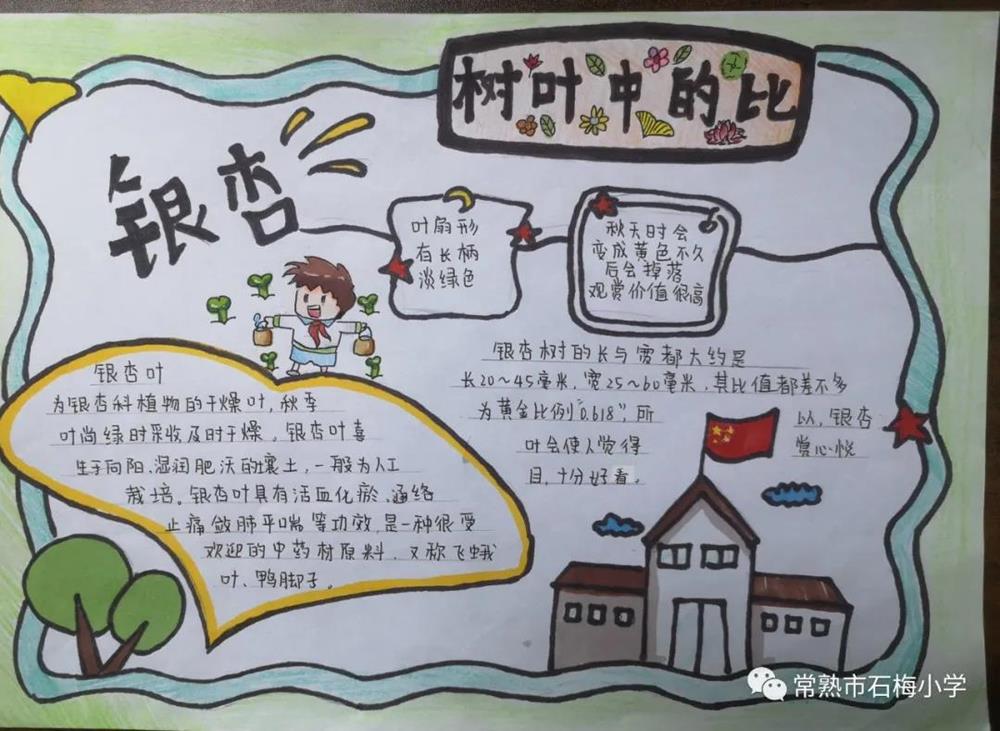 树叶中的比
银杏
叶扇形
有长柄
淡绿色
秋天时会
变成黄色不久
后会掉落
观赏价值很高
银杏叶
为银杏科植物的干燥叶,秋季
叶尚绿时采收及时干燥。银杏叶喜
生于向阳、湿润肥沃的壤土,一般为人工
栽培。银杏叶具有活血化瘀、通络
止痛敛肺平喘等功效,是一种很受
欢迎的中药材原料、又称飞蛾
叶、鸭脚子。
银杏树的长与宽都大约是
长20~45毫米,宽25~60毫米,其比值都差不多
为黄金比例"0.618",所以,银杏
叶会使人觉得赏心悦
目,十分好看。
常熟市石梅小学